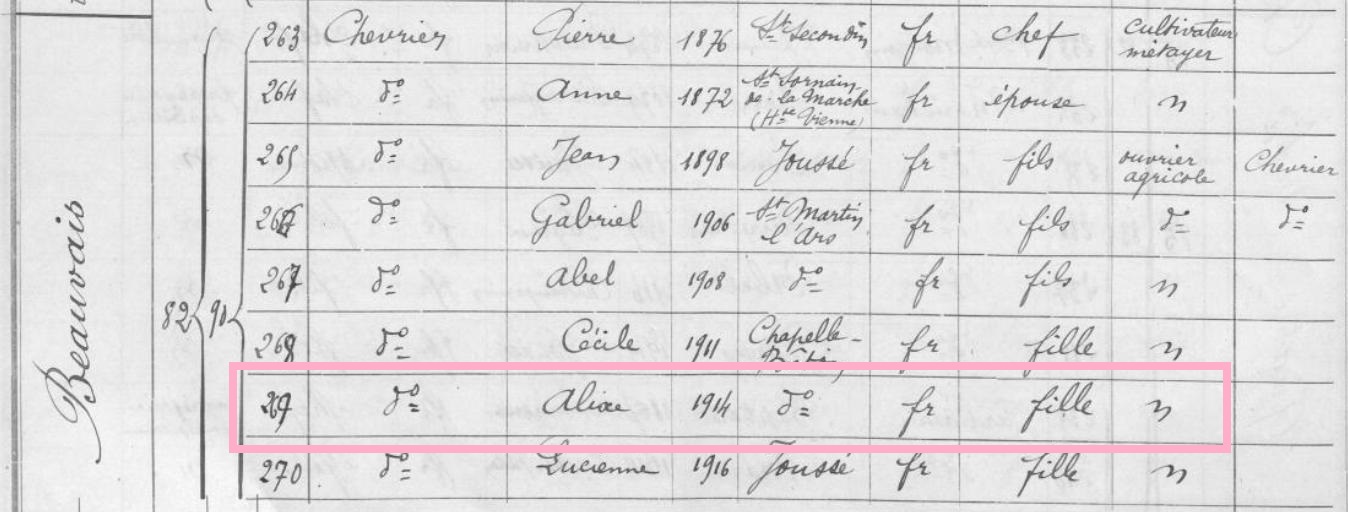 Beauvais
82 90
263 Chevrier Pierre 1876 St Secondin fr chef cultivateur métayer
264 do Anne 1872 St Sornain de la Marche (Hte Vienne) fr épouse n
265 do Jean 1898 Joussé fr fils ouvrier agricole Chevrier
266 do Gabriel 1906 St Martin l'Ars fr fils do do
267 do Abel 1908 do fr fils n
268 do Cécile 1911 Chapelle- fr fille n
269 do 1914 do fr fille n
270 do Lucienne 1916 Joussé fr fille n